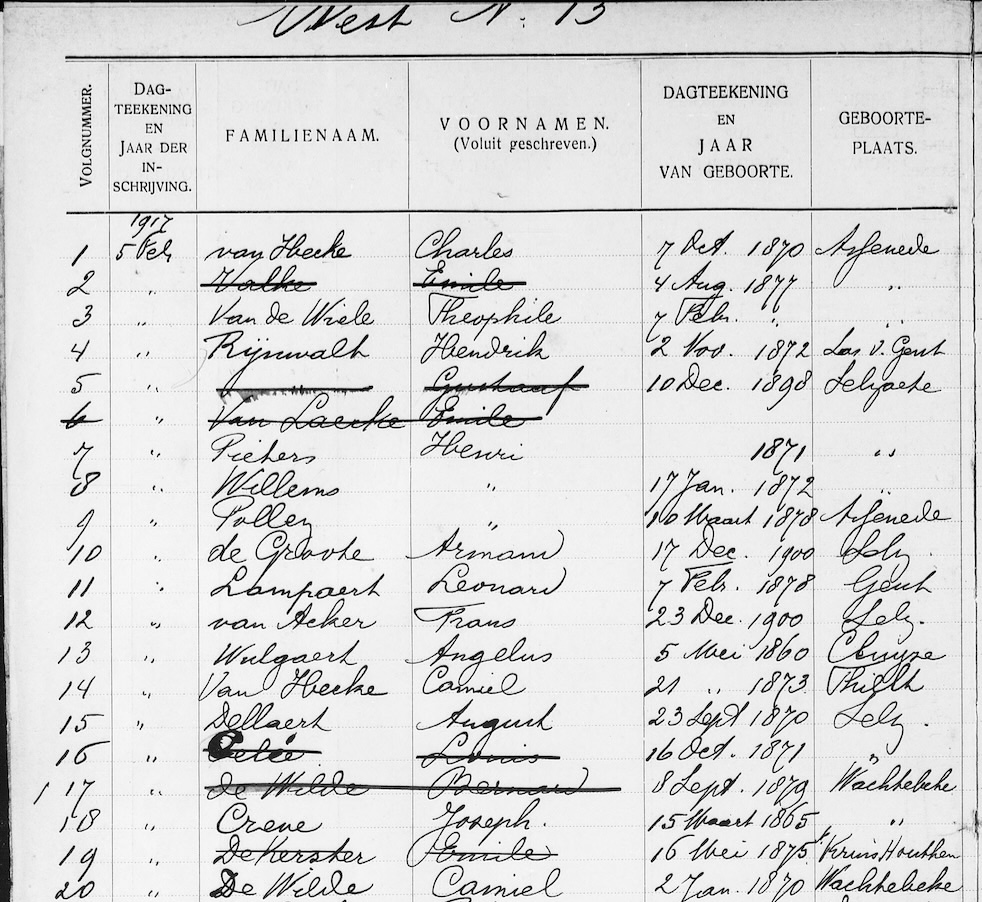 West N. 13
VOLGNUMMER. DAG- TEEKENING EN JAAR DER IN- SCHRIJVING. FAMILIENAAM. VOORNAMEN. (Voluit geschreven.) DAGTEEKENING EN JAAR VAN GEBOORTE. GEBOORTE- PLAATS.
1917
1 5 Feb van Hecke Charles 7 Oct. 1870 Assenede
2 " Valke Emile 4 Aug. 1877 "
3 " Van de Wiele Theophile 7 Febr. " "
4 " Rijnwalt Hendrik 2 Nov. 1872 Sas v. Gent
5 " Gustaaf 10 Dec. 1898 Selzaete
6 " Van Laecke Emile
7 " Pieters Henri 1871 "
8 " Willems " 17 Jan. 1872 "
9 " Polley " 10 Maart 1878 Assenede
10 " de Groote Armand 17 Dec. 1900 Selz.
11 " Lampaert Leonard 7 Febr. 1878 Gent
12 " van Acker Frans 23 Dec. 1900 Selz.
13 " Wulgaert Angelus 5 Mei 1860 Cluyze
14 " Van Hecke Camiel 21 " 1873 Thielt
15 " Dellaert August 23 Sept 1870 Selz.
16 " Louis 16 Oct. 1871 "
1 17 " de Wilde Bernard 8 Sept. 1879 Wachtebeke
18 " Creve Joseph. 15 Maart 1865 "
19 " De Kerster Emile 16 Mei 1875 Kruis Houthen
20 " De Wilde Camiel 2 Jan. 1870 Wachtebeke